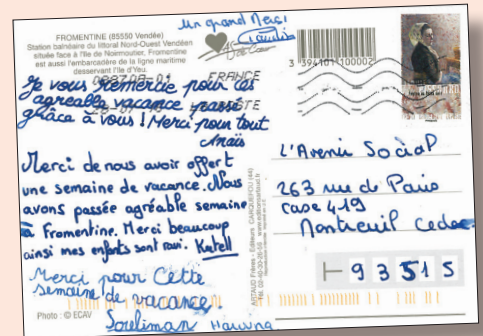 Un grand Merci
Claudia
FROMENTINE (85550 Vendée)
Station balnéaire du littoral Nord-Ouest Vendéen
située face à l'Ile de Noirmoutier, Fromentine
est aussi l'embarcadère de la ligne maritime
desservant l'Ile d'Yeu.
FRANCE
3394101100002
Je vous remercie pour ces
agreable vacance passé
grâce à vous ! Merci pour tout
Anaïs
Merci de nous avoir offert
une semaine de vacance. Nous
avons passée agréable semaine
a Fromentine. Merci beaucoup
ainsi mes enfants sont ravi. Katell
Merci pour Cette
semaine de vacance.
Souliman Hawna
Photo : © ECAV
ARTAUD Frères - Editeurs CARQUEFOU (44)
L'Avenir Social
263 rue de Paris
case 419
Montreuil Cedex
93515